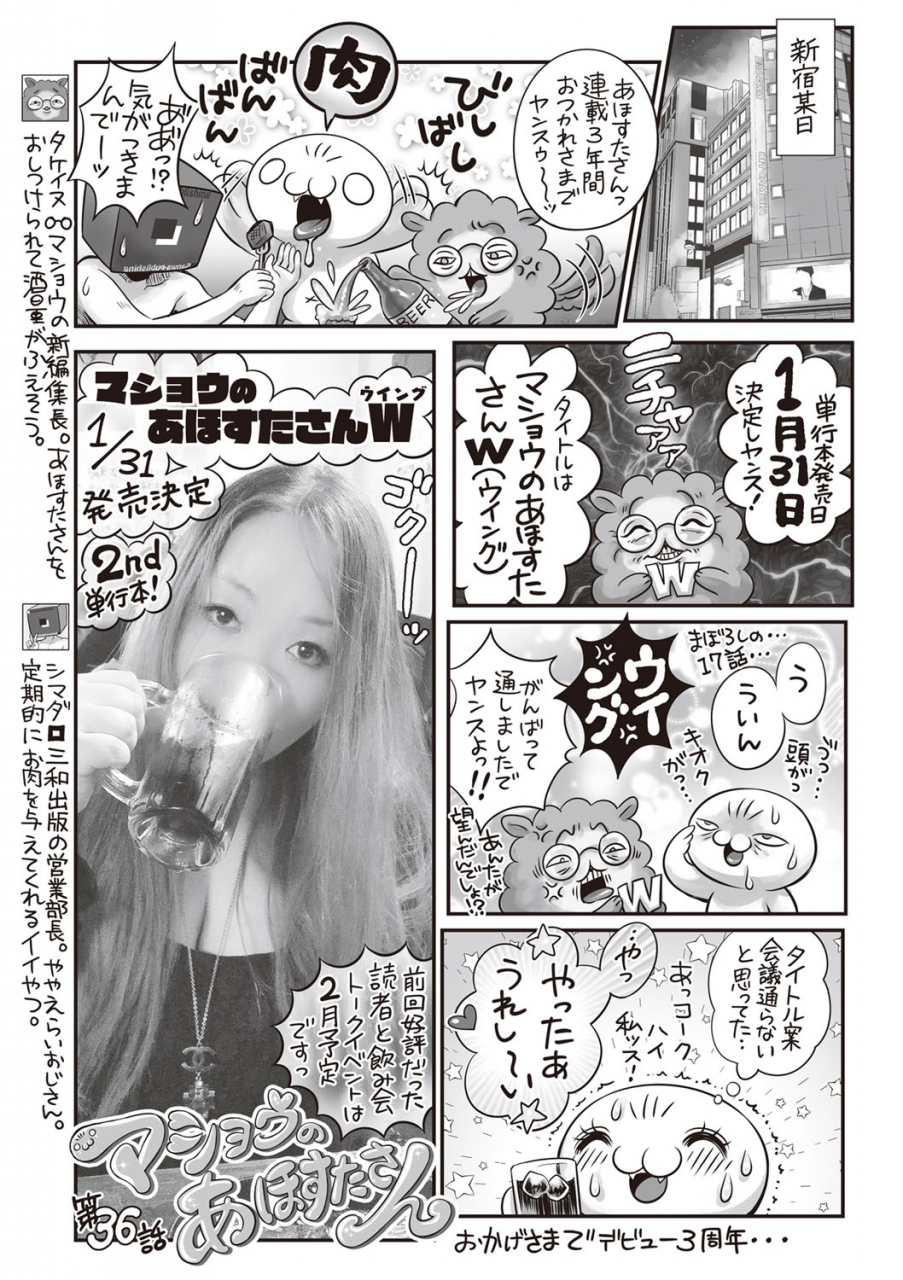 新宿某日
あほすたさんっ
連載3年間
おつかれさまで
ヤンスゥ〜〜ッ
びし
ばし
肉
ばん
ばん
あ゛あ゛っ!?
気がつきま
んで〜ッ
BEER
単行本発売日
1月31日
決定しヤンス!
ニチャアァ
タイトルは
マショウのあほすた
さんW(ウイング)
W
う
ういん
まぼろしの…
17話…
う゛っ…
頭がっ
キオク
がっ…
ウイ
ング
がんばって
通しましたで
ヤンスよっ!!
あんたが
望んだんでしょ!?
W
タイトル案
会議通らない
と思ってた…
あっコーク
ハイ
私ッス!
やっ…
やったぁ
うれし〜い
おかげさまでデビュー3周年・・・
マショウの
あほすたさんW
ウイング
1/31
発売決定
2nd
単行本!
ゴク――ッ
前回好評だった
読者と飲み会
トークイベントは
2月予定
ですっ
マショウの
あほすたさん
第36話
タケイヌ マショウの新編集長。あほすたさんを
おしつけられて酒量がふえそう。
シマダ 三和出版の営業部長。ややえらいおじさん。
定期的にお肉を与えてくれるイイやつ。